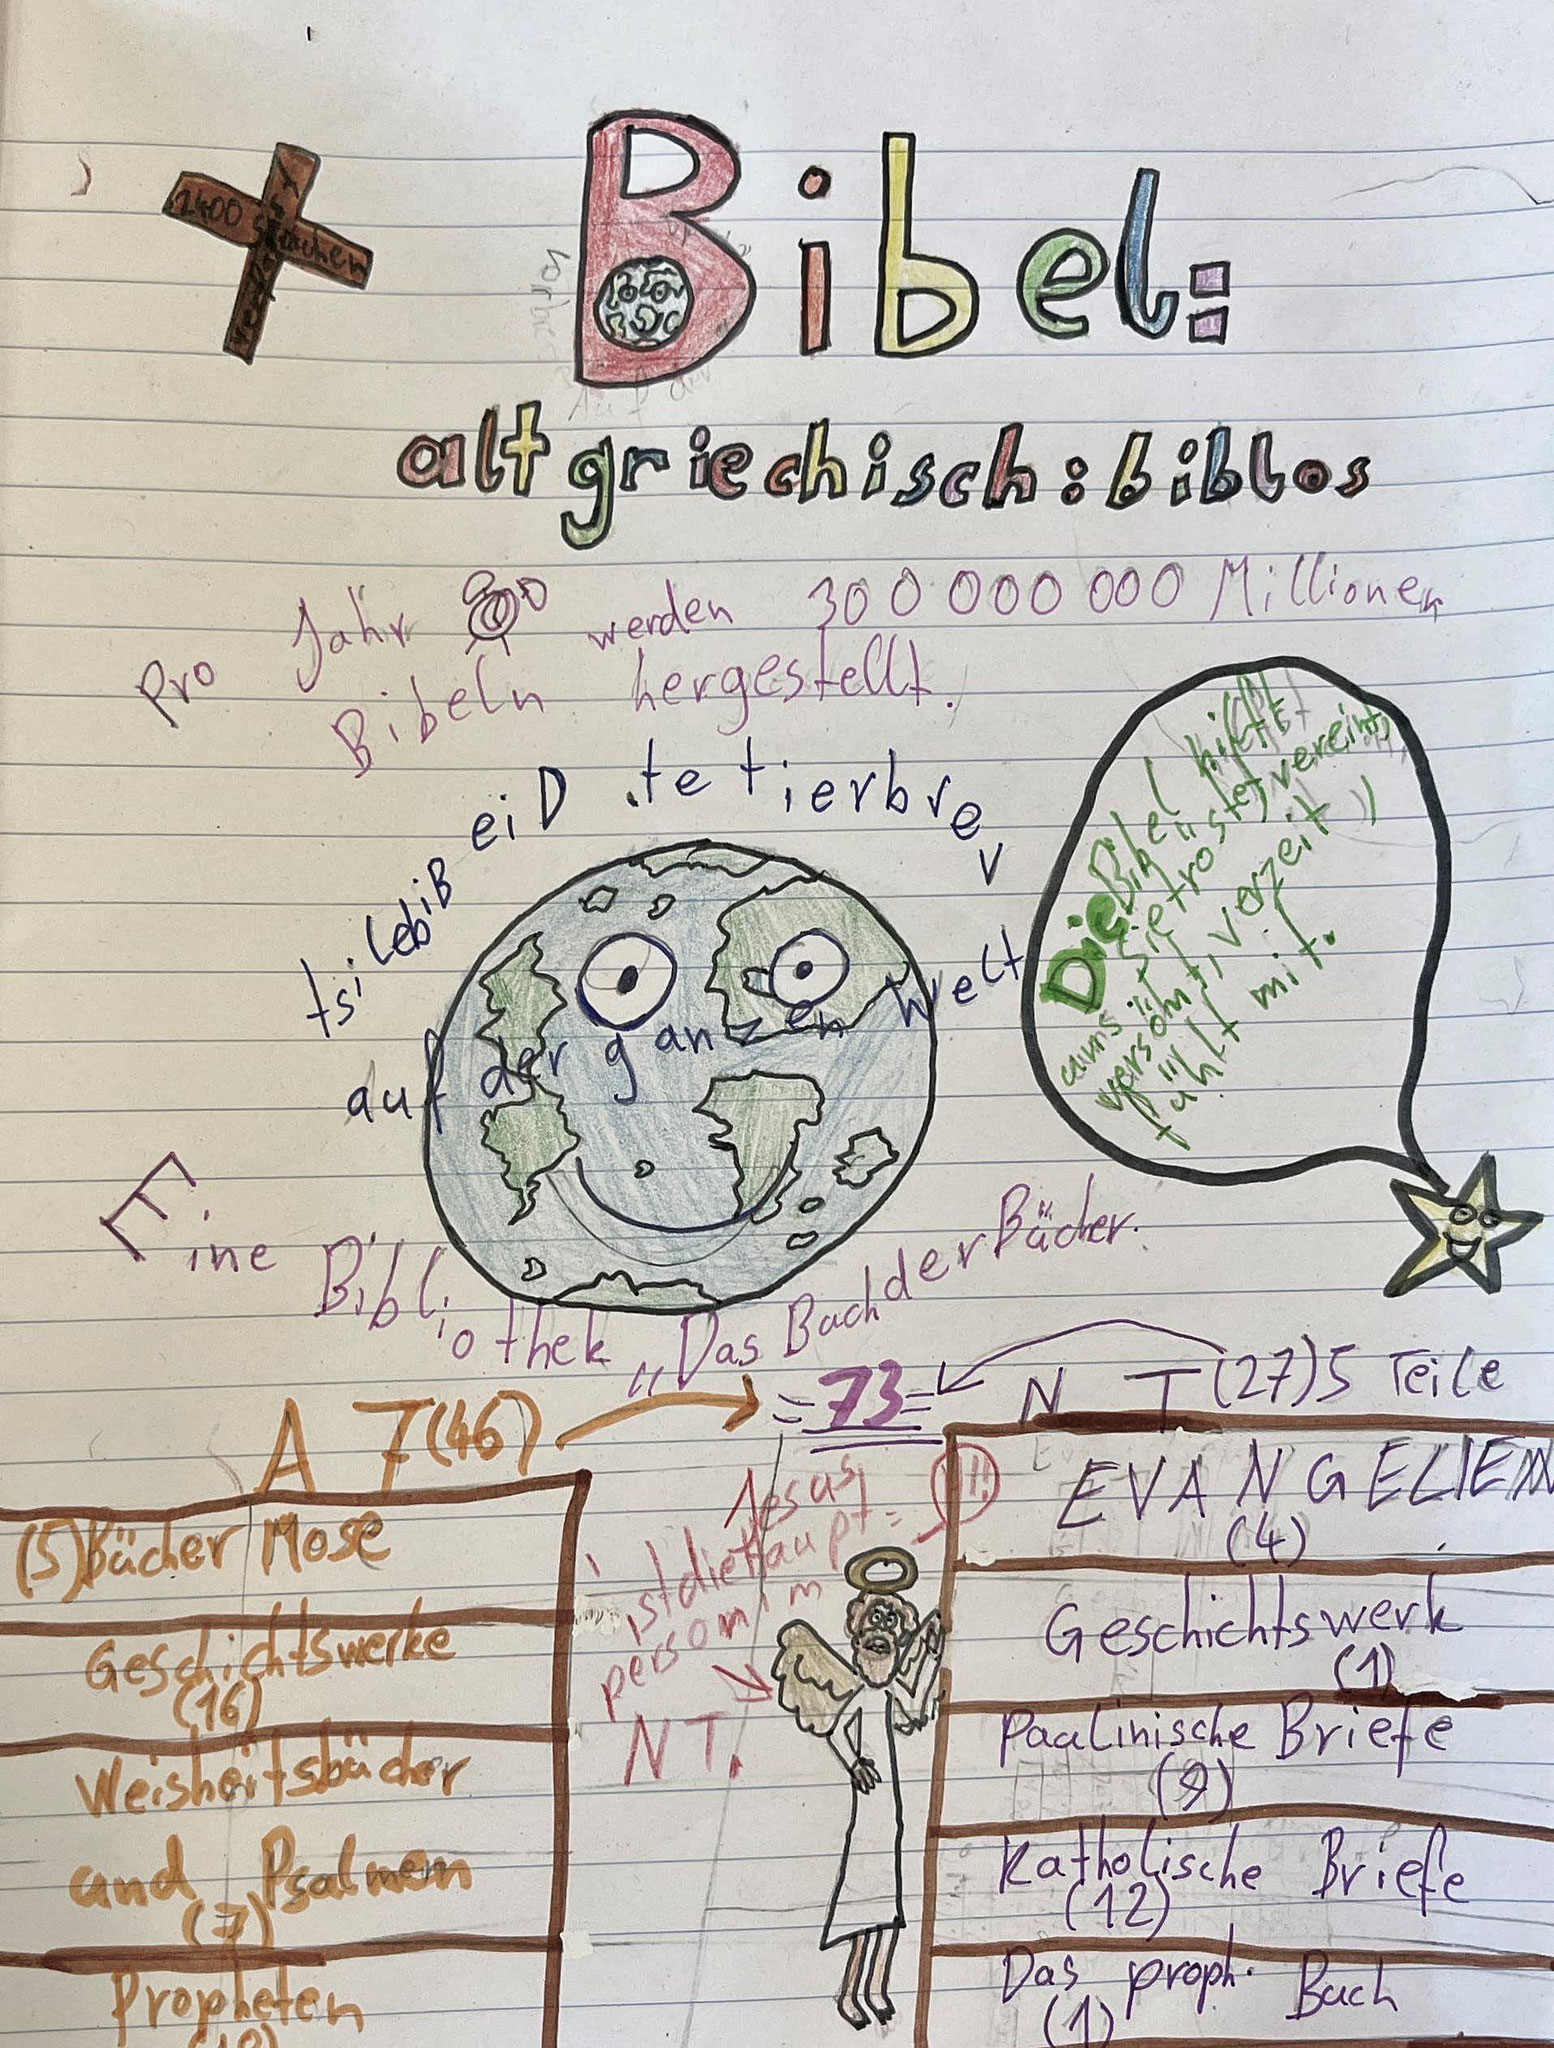 2400 Sprachen
Bibel:
altgriechisch: biblos
Pro Jahr werden 300 000 000 Millionen
Bibeln hergestellt.
Die Bibel ist
verbreitet.
auf der ganzen Welt
Die Bibel hilft
uns, sie tröstet, vereint,
versöhnt, verzeiht,
fühlt mit.
Eine Bibliothek „Das Buch der Bücher.
A T (46)
=73=
N T (27) 5 Teile
(5) Bücher Mose
Geschichtswerke
(16)
Weisheitsbücher
und Psalmen
(7)
Propheten
(18)
Jesus
ist die Haupt=
person im
NT.
!!!
EVANGELIEN
(4)
Geschichtswerk
(1)
Paulinische Briefe
(9)
Katholische Briefe
(12)
Das proph. Buch
(1)